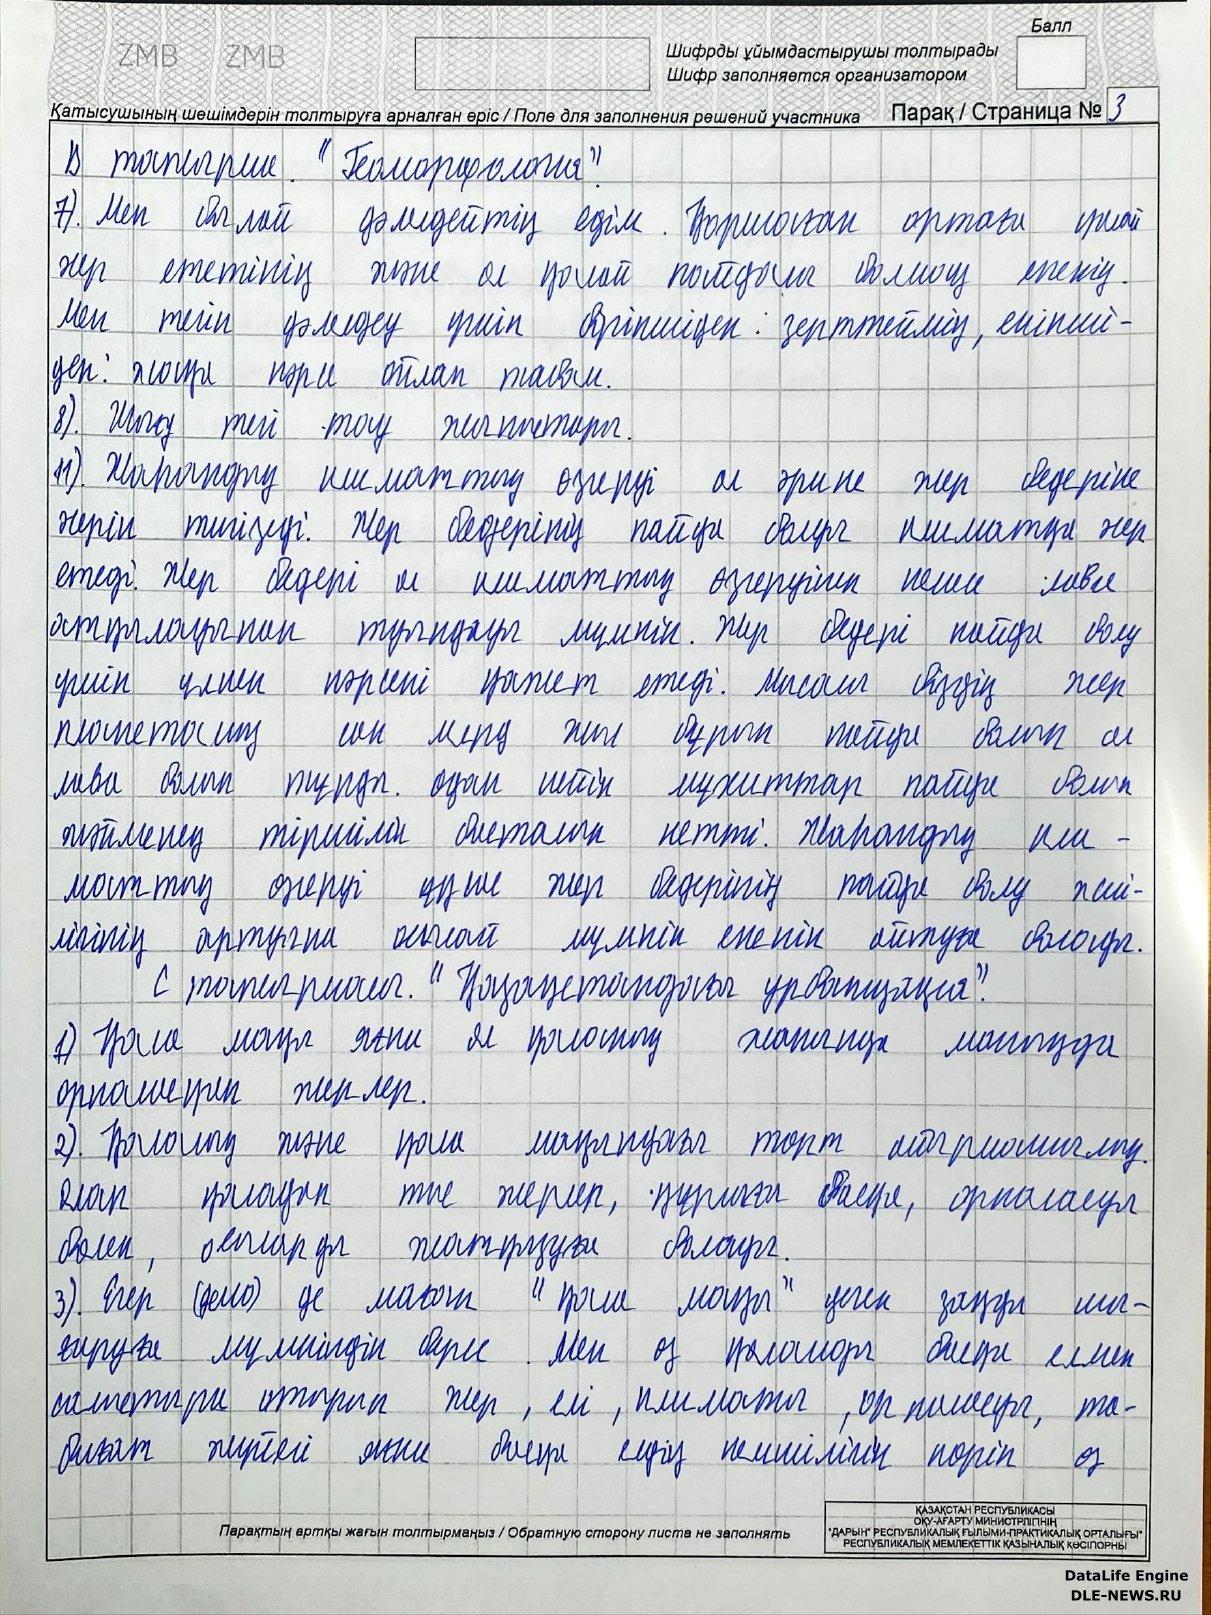 ZMB ZMB
Балл
Шифрды ұйымдастырушы толтырады
Шифр заполняется организатором
Қатысушының шешімдерін толтыруға арналған өріс / Поле для заполнения решений участника Парақ / Страница № 3
В тапсырма. "Геоморфология".
7). Мен былай дәлелдейтің едім. Қоршаған ортаға қалай
әсер ететінің және ол қалай пайдалы болмақ екенің.
Мен тегін дәлелдеу үшін біріншіден: зерттеймің, екінші-
ден: жаңа нәрсе ойлап табам.
8). Шығу тегі тау жыныстары.
11). Жаһандық климаттың өзгеруі ол әрине жер бедеріне
әсерін тигізеді. Жер бедерінің пайда болуы климатқа әсер
етеді. Жер бедері ол климаттың өзгеруінен немесе лава
атқылауынан туындауы мүмкін. Жер бедері пайда болу
үшін үлкен нәрсені қажет етеді. Мысалы біздің жер
планетасың сан млрд жыл бұрын пайда болып ол
лава болып тұрды. Одан кейін мұхиттар пайда болып
жәйменен тіршілік басталып кетті. Жаһандық кли-
маттың өзгеруі және жер бедерінің пайда болу жиі-
лігінің артуына осылай мүмкін екенін айтуға болады.
С тапсырмасы. "Қазақстандағы урбанизация".
1) Қала маңы яғни ол қаланың жанында маңында
орналасқан жерлер.
2). Қаланың және қала маңындағы төрт айырмашылық.
Олар қаладан тыс жерлер, құрлығы басқа, орналасуы
бөлек, осыларды жатқызуға болады.
3). Егер (дело) де маған "қала маңы" деген заңды шы-
ғаруға мүмкіндік берсе. Мен өз қаламды басқа елмен
салыстыра отырып жер, елі, климаты, орналасуы, та-
биғат жүйесі яғни басқа елдің кемшілігін көріп өз
Парақтың артқы жағын толтырмаңыз / Обратную сторону листа не заполнять
ҚАЗАҚСТАН РЕСПУБЛИКАСЫ
ОҚУ-АҒАРТУ МИНИСТРЛІГІНІҢ
"ДАРЫН" РЕСПУБЛИКАЛЫҚ ҒЫЛЫМИ-ПРАКТИКАЛЫҚ ОРТАЛЫҒЫ"
РЕСПУБЛИКАЛЫҚ МЕМЛЕКЕТТІК ҚАЗЫНАЛЫҚ КӘСІПОРНЫ
DataLife Engine
DLE-NEWS.RU